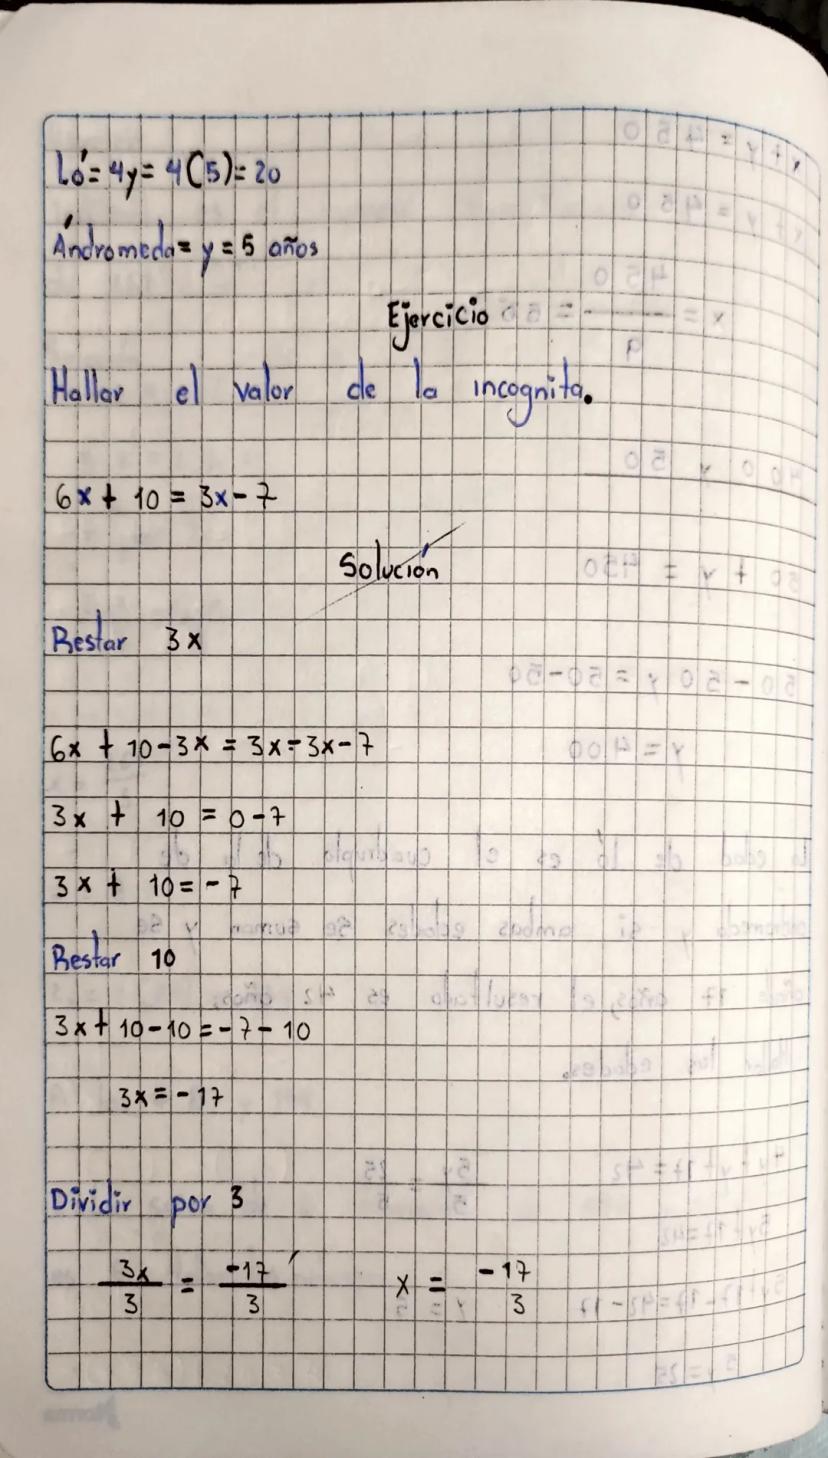 Ló = 4y = 4(5) = 20
Ándromeda = y = 5 años
Ejercicio
Hallar el valor de la incognita.
6x + 10 = 3x - 7
Solución
Restar 3x
6x + 10 - 3x = 3x - 3x - 7
3x + 10 = 0 - 7
3x + 10 = - 7
Restar 10
3x + 10 - 10 = - 7 - 10
3x = - 17
Dividir por 3
3x/3 = -17/3 x = -17/3
Norma